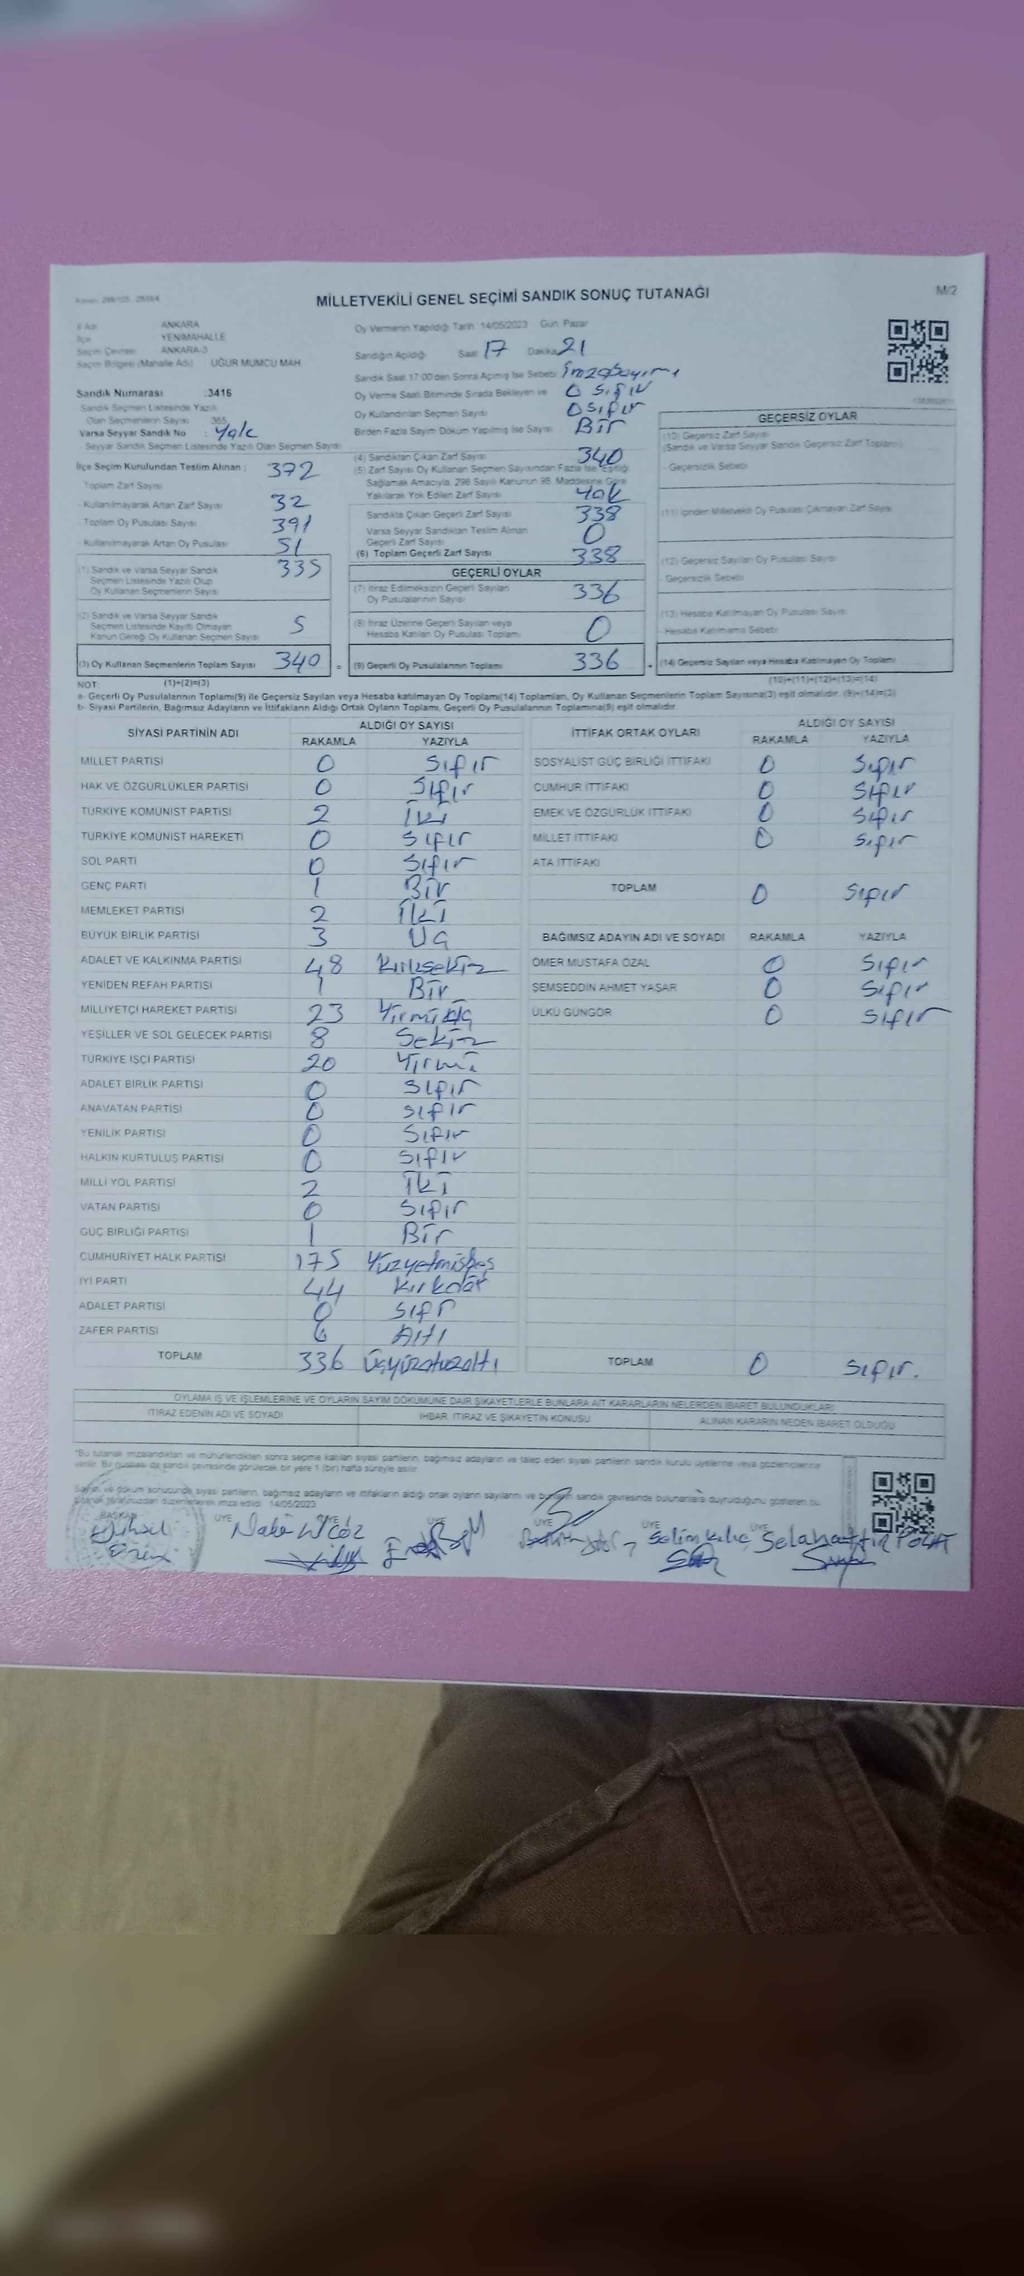 MİLLETVEKİLİ GENEL SEÇİMİ SANDIK SONUÇ TUTANAĞI
M/2
İl Adı ANKARA
İlçe YENİMAHALLE
Seçim Çevresi ANKARA-3
Seçim Bölgesi (Mahalle Adı) UĞUR MUMCU MAH
Sandık Numarası :3416
Sandık Seçmen Listesinde Yazılı
Olan Seçmenlerin Sayısı 365
Varsa Seyyar Sandık No : Yok
Seyyar Sandık Seçmen Listesinde Yazılı Olan Seçmen Sayısı
İlçe Seçim Kurulundan Teslim Alınan :
Toplam Zarf Sayısı 372
- Kullanılmayarak Artan Zarf Sayısı 32
- Toplam Oy Pusulası Sayısı 391
- Kullanılmayarak Artan Oy Pusulası 51
(1) Sandık ve Varsa Seyyar Sandık 335
Seçmen Listesinde Yazılı Olup
Oy Kullanan Seçmenlerin Sayısı
(2) Sandık ve Varsa Seyyar Sandık
Seçmen Listesinde Kayıtlı Olmayan 5
Kanun Gereği Oy Kullanan Seçmen Sayısı
(3) Oy Kullanan Seçmenlerin Toplam Sayısı 340 =
Oy Vermenin Yapıldığı Tarih :14/05/2023 Gün: Pazar
Sandığın Açıldığı Saat 17 Dakika 21
Sandık Saat 17:00'den Sonra Açılmış İse Sebebi
Oy Verme Saati Bitiminde Sırada Bekleyen ve 0 Sıfır
Oy Kullandırılan Seçmen Sayısı 0 Sıfır
Birden Fazla Sayım Döküm Yapılmış İse Sayısı Bir
(4) Sandıktan Çıkan Zarf Sayısı 340
(5) Zarf Sayısı Oy Kullanan Seçmen Sayısından Fazla İse Eşitliği
Sağlamak Amacıyla, 298 Sayılı Kanunun 98. Maddesine Göre
Yakılarak Yok Edilen Zarf Sayısı Yok
Sandıkta Çıkan Geçerli Zarf Sayısı 338
Varsa Seyyar Sandıktan Teslim Alınan
Geçerli Zarf Sayısı 0
(6) Toplam Geçerli Zarf Sayısı 338
GEÇERLİ OYLAR
(7) İtiraz Edilmeksizin Geçerli Sayılan
Oy Pusulalarının Sayısı 336
(8) İtiraz Üzerine Geçerli Sayılan veya
Hesaba Katılan Oy Pusulası Toplamı 0
(9) Geçerli Oy Pusulalarının Toplamı 336
GEÇERSİZ OYLAR
(10) Geçersiz Zarf Sayısı
(Sandık ve Varsa Seyyar Sandık Geçersiz Zarf Toplamı)
- Geçersizlik Sebebi
(11) İçinden Milletvekili Oy Pusulası Çıkmayan Zarf Sayısı
(12) Geçersiz Sayılan Oy Pusulası Sayısı
- Geçersizlik Sebebi
(13) Hesaba Katılmayan Oy Pusulası Sayısı
- Hesaba Katılmama Sebebi
(14) Geçersiz Sayılan veya Hesaba Katılmayan Oy Toplamı
NOT: (1)+(2)=(3) (10)+(11)+(12)+(13)=(14)
a- Geçerli Oy Pusulalarının Toplamı(9) ile Geçersiz Sayılan veya Hesaba katılmayan Oy Toplamı(14) Toplamları, Oy Kullanan Seçmenlerin Toplam Sayısına(3) eşit olmalıdır. (9)+(14)=(3)
b- Siyasi Partilerin, Bağımsız Adayların ve İttifakların Aldığı Ortak Oyların Toplamı, Geçerli Oy Pusulalarının Toplamına(9) eşit olmalıdır
SİYASİ PARTİNİN ADI ALDIĞI OY SAYISI
RAKAMLA YAZIYLA
MİLLET PARTİSİ 0 Sıfır
HAK VE ÖZGÜRLÜKLER PARTİSİ 0 Sıfır
TÜRKİYE KOMÜNİST PARTİSİ 2 İki
TÜRKİYE KOMÜNİST HAREKETİ 0 Sıfır
SOL PARTİ 0 Sıfır
GENÇ PARTİ 1 Bir
MEMLEKET PARTİSİ 2 İki
BÜYÜK BİRLİK PARTİSİ 3 Üç
ADALET VE KALKINMA PARTİSİ 48 Kırksekiz
YENİDEN REFAH PARTİSİ 1 Bir
MİLLİYETÇİ HAREKET PARTİSİ 23 Yirmiüç
YEŞİLLER VE SOL GELECEK PARTİSİ 8 Sekiz
TÜRKİYE İŞÇİ PARTİSİ 20 Yirmi
ADALET BİRLİK PARTİSİ 0 Sıfır
ANAVATAN PARTİSİ 0 Sıfır
YENİLİK PARTİSİ 0 Sıfır
HALKIN KURTULUŞ PARTİSİ 0 Sıfır
MİLLİ YOL PARTİSİ 2 İki
VATAN PARTİSİ 0 Sıfır
GÜÇ BİRLİĞİ PARTİSİ 1 Bir
CUMHURİYET HALK PARTİSİ 175 Yüzyetmişbeş
İYİ PARTİ 44 Kırkdört
ADALET PARTİSİ 0 Sıfr
ZAFER PARTİSİ 6 Altı
TOPLAM 336 Üçyüzotuzaltı
İTTİFAK ORTAK OYLARI ALDIĞI OY SAYISI
RAKAMLA YAZIYLA
SOSYALİST GÜÇ BİRLİĞİ İTTİFAKI 0 Sıfır
CUMHUR İTTİFAKI 0 Sıfır
EMEK VE ÖZGÜRLÜK İTTİFAKI 0 Sıfır
MİLLET İTTİFAKI 0 Sıfır
ATA İTTİFAKI
TOPLAM 0 Sıfır
BAĞIMSIZ ADAYIN ADI VE SOYADI RAKAMLA YAZIYLA
ÖMER MUSTAFA ÖZAL 0 Sıfır
ŞEMSEDDİN AHMET YAŞAR 0 Sıfır
ÜLKÜ GÜNGÖR 0 Sıfır
TOPLAM 0 Sıfır.
OYLAMA İŞ VE İŞLEMLERİNE VE OYLARIN SAYIM DÖKÜMÜNE DAİR ŞİKAYETLERLE BUNLARA AİT KARARLARIN NELERDEN İBARET BULUNDUKLARI
İTİRAZ EDENİN ADI VE SOYADI İHBAR, İTİRAZ VE ŞİKAYETİN KONUSU ALINAN KARARIN NEDEN İBARET OLDUĞU
*Bu tutanak imzalandıktan ve mühürlendikten sonra seçime katılan siyasi partilerin, bağımsız adayların ve talep eden siyasi partilerin sandık kurulu üyelerine veya gözlemcilerine
verilir. Bir nüshası da sandık çevresinde görülecek bir yere 1 (bir) hafta süreyle asılır.
Sayım ve döküm sonucunda siyasi partilerin, bağımsız adayların ve ittifakların aldığı ortak oyların sayılarını ve bunların sandık çevresinde bulunanlara duyurulduğunu gösteren bu
tutanak tarafımızdan düzenlenerek imza edildi. 14/05/2023
BAŞKAN ÜYE ÜYE ÜYE ÜYE ÜYE
Selim Kılıç Selahattin POLAT